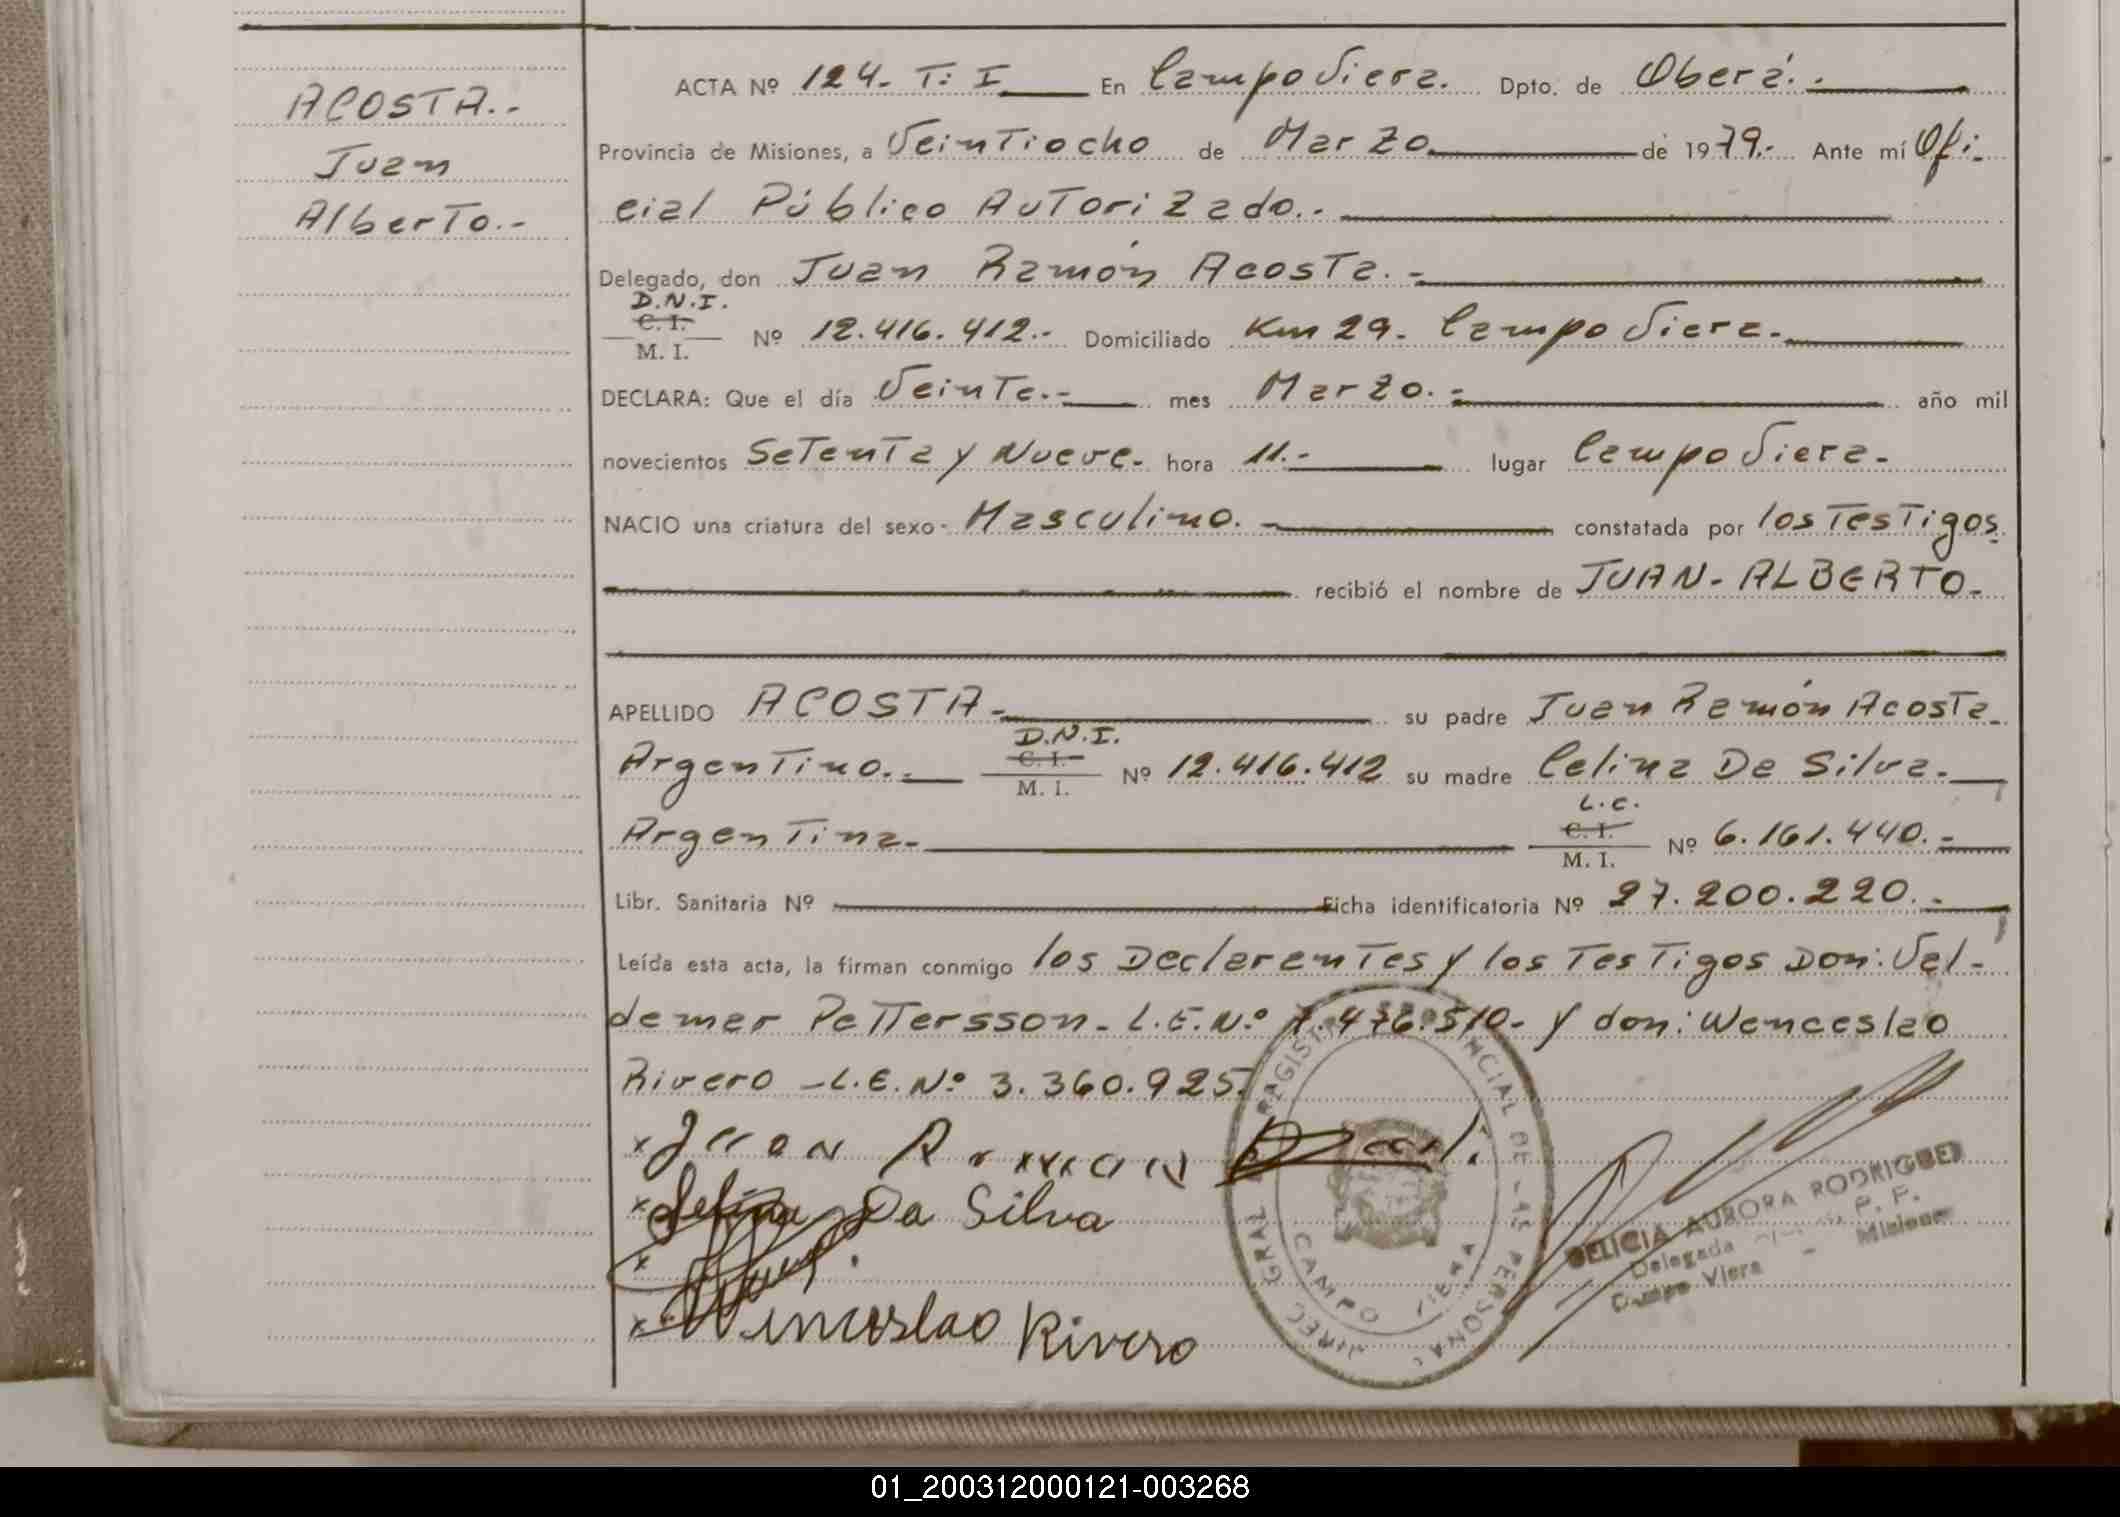 ACOSTA.-
Juan
Alberto.-
ACTA Nº 124. T: I En Campo Viera. Dpto. de Oberá.
Provincia de Misiones, a Veintiocho de Marzo de 1979.- Ante mí Ofi-
cial Público Autorizado.-
Delegado, don Juan Ramón Acosta.-
D.N.I.
C. I.
M. I. Nº 12.416.412.- Domiciliado Km 29. Campo Viera.
DECLARA: Que el día Veinte.- mes Marzo.- año mil
novecientos Setenta y Nueve. hora 11.- lugar Campo Viera.
NACIO una criatura del sexo Masculino.- constatada por los Testigos.
recibió el nombre de JUAN-ALBERTO-
APELLIDO ACOSTA- su padre Juan Ramón Acosta-
D.N.I.
C. I.
Argentino.- M. I. Nº 12.416.412 su madre Celina Da Silva.
L.C.
C. I.
Argentina- M. I. Nº 6.161.440.-
Libr. Sanitaria Nº Ficha identificatoria Nº 27.200.220.-
Leída esta acta, la firman conmigo los Declarantes y los Testigos Don: Val-
demar Pettersson- L.E.Nº 7.476.510- y don: Wenceslao
Rivero -L.E.Nº 3.360.925.
x Juan Ramon
x Selina Da Silva
x
x Winceslao Rivero
DIREC. GRAL. REGISTRO PROVINCIAL DE LAS PERSONAS
CAMPO VIERA
DELICIA AURORA RODRIGUEZ
Delegada
Campo Viera - Misiones
01_200312000121-003268